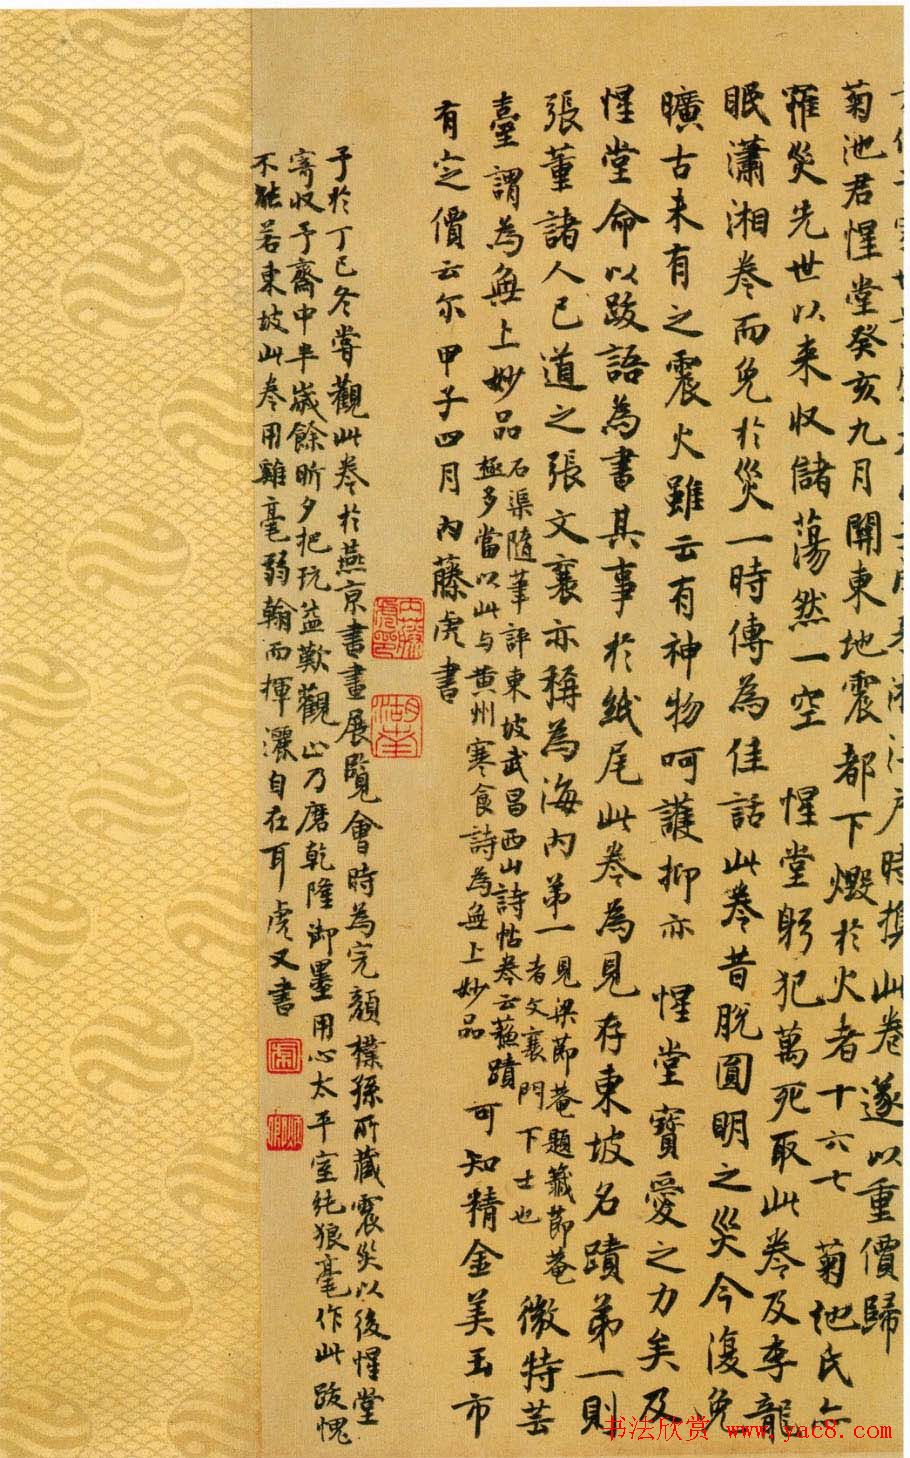 時攜此卷遂以重價歸
菊池君惺堂癸亥九月關東地震都下燬於火者十六七 菊池氏亦
罹災先世以来収儲蕩然一空 惺堂躬犯萬死取此卷及李龍
眠瀟湘卷而免於災一時傳為佳話此卷昔脫圓明之災今復免
曠古未有之震火雖云有神物呵護抑亦 惺堂寶愛之力矣及
惺堂命以跋語為書其事於紙尾此卷為見存東坡名蹟第一則
張董諸人已道之張文襄亦稱為海內第一
見梁節菴題籤節菴
者文襄門下士也
微特芸
臺謂為無上妙品
石渠隨筆評東坡武昌西山詩帖卷云蘇蹟
極多當以此与黄州寒食詩為無上妙品
可知精金美玉市
有定價云尓甲子四月內藤虎書
內藤虎印
湖南
予於丁巳冬嘗觀此卷於燕京書畫展覽會時為完顏樸孫所藏震災以後惺堂
寄収予齋中半歲餘昕夕把玩益歎觀止乃磨乾隆御墨用心太平室純狼毫作此跋愧
不能若東坡此卷用雞毫弱翰而揮灑自在耳虎又書
书法欣赏
www.yac8.com